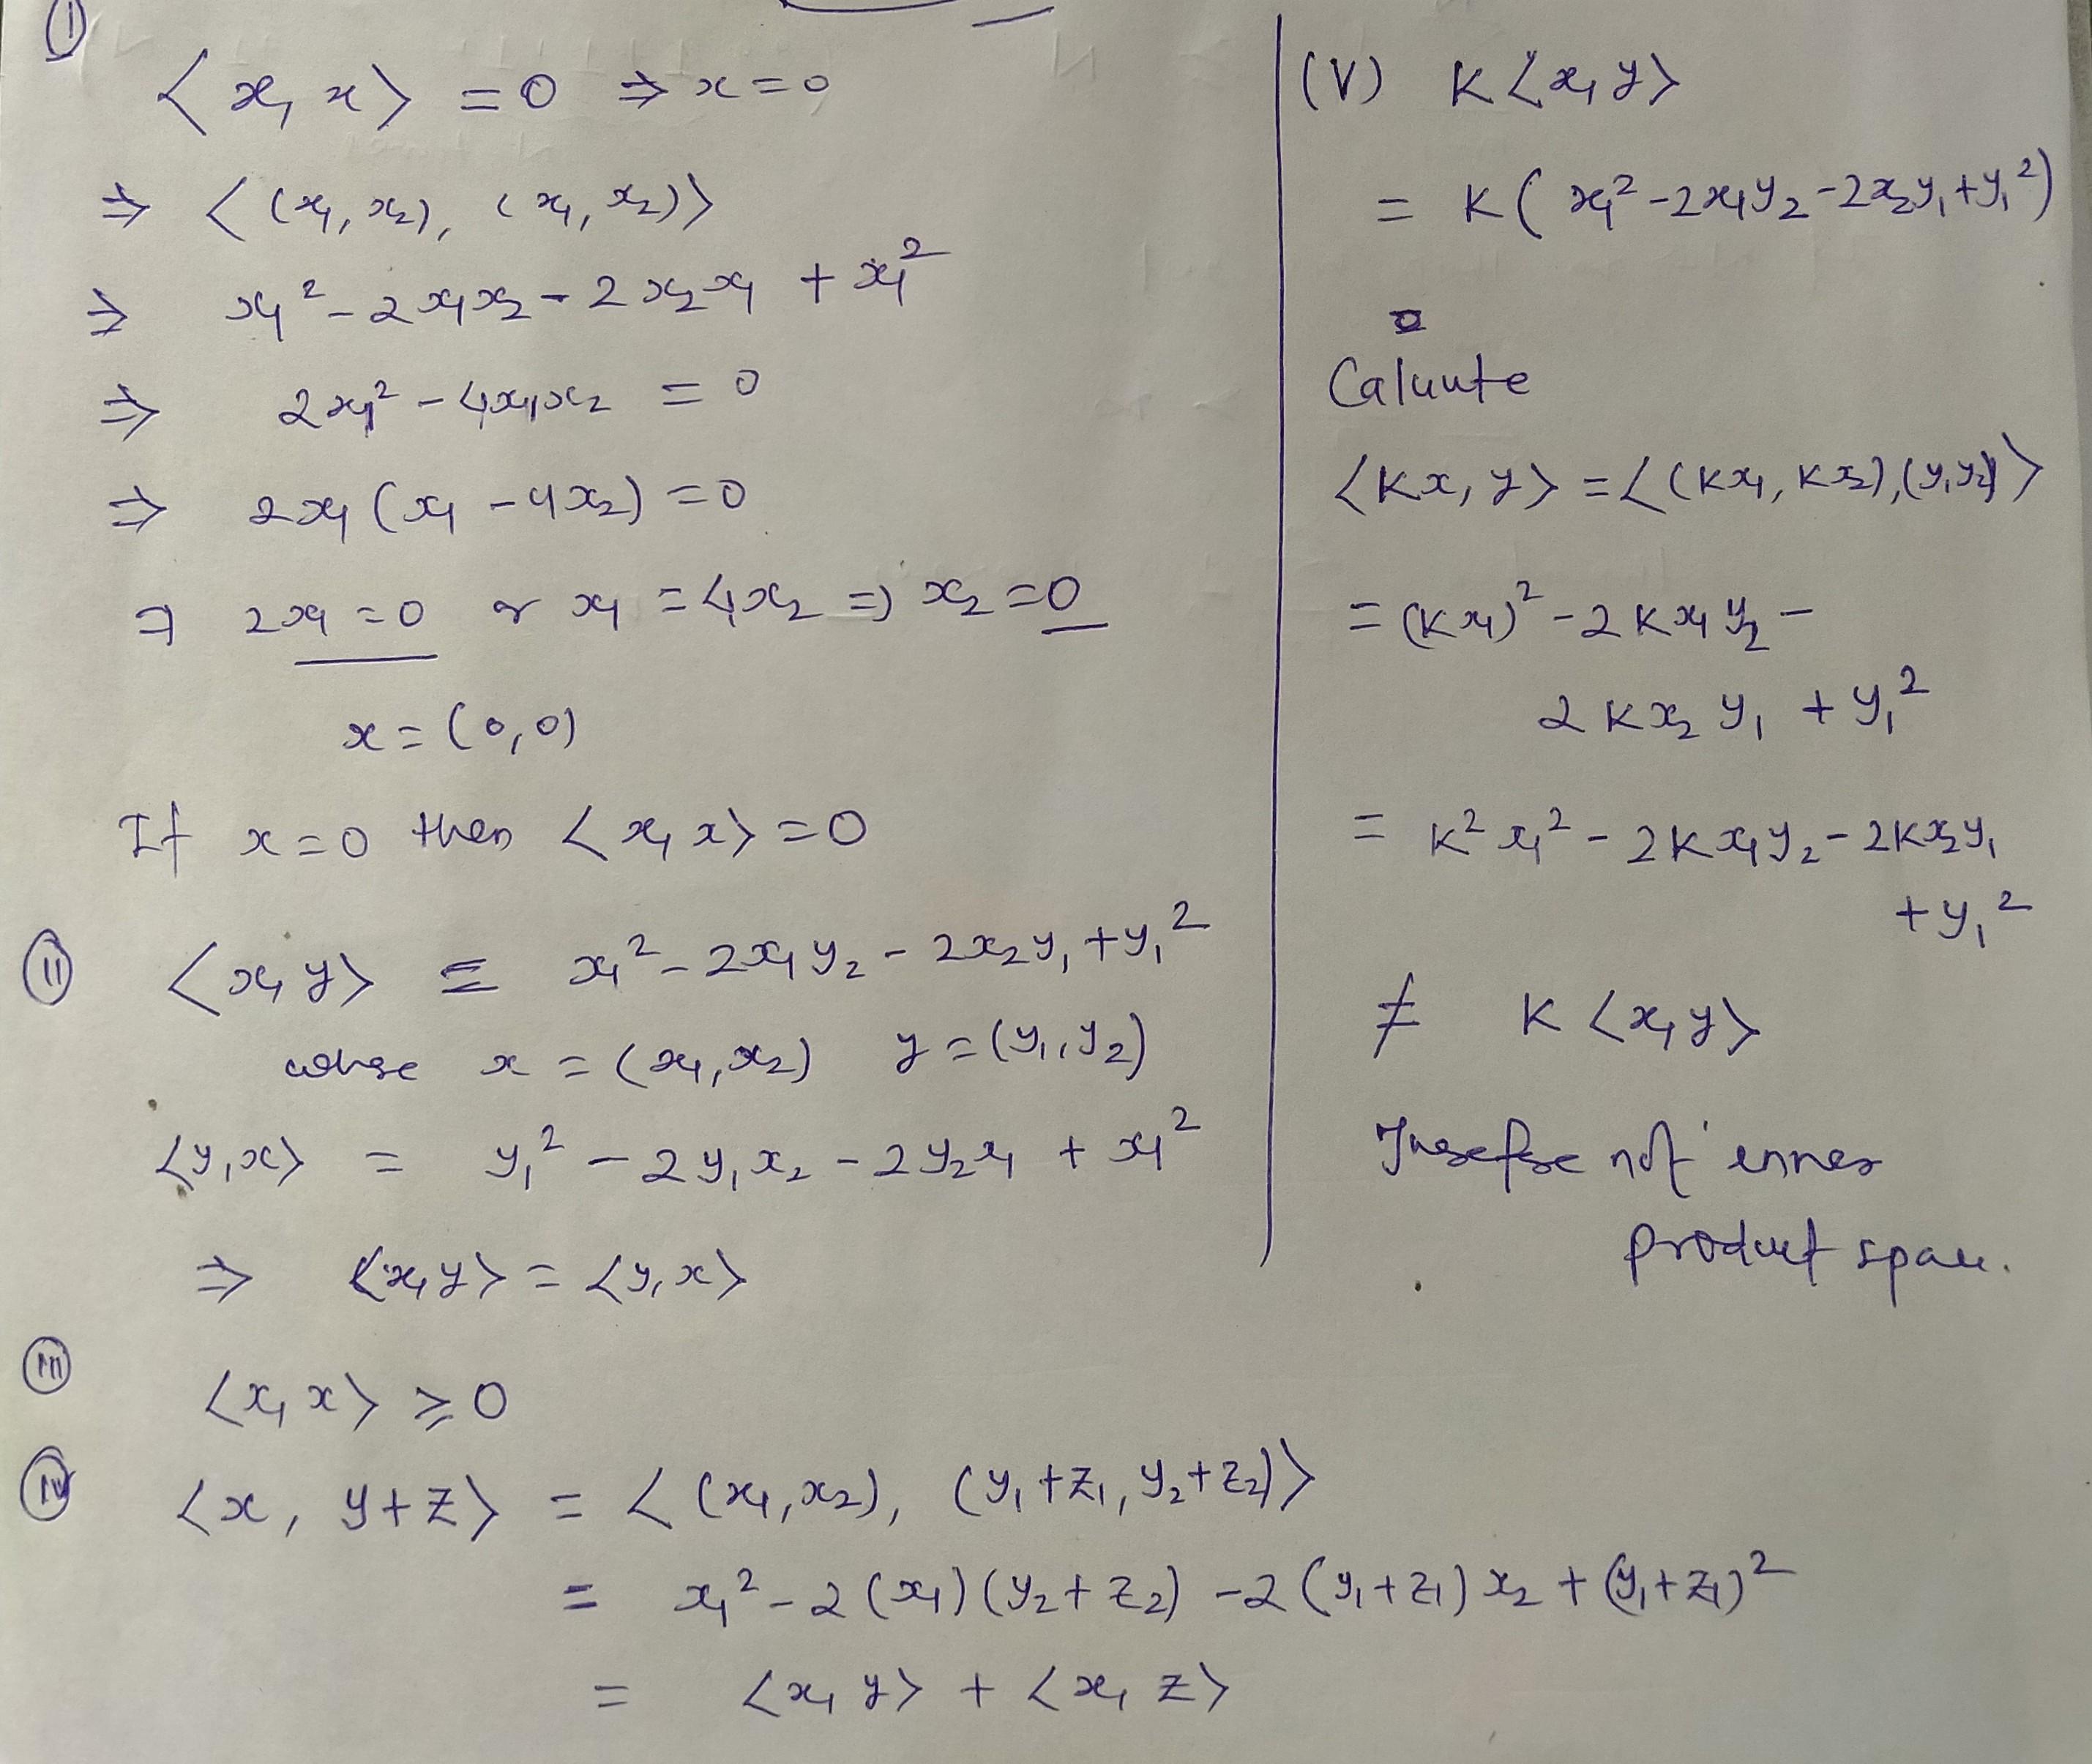 (i)
⟨x, x⟩ = 0 ⇒ x = 0
⇒ ⟨(x₁, x₂), (x₁, x₂)⟩
⇒ x₁² - 2x₁x₂ - 2x₂x₁ + x₁²
⇒ 2x₁² - 4x₁x₂ = 0
⇒ 2x₁(x₁ - 4x₂) = 0
⇒ 2x₁ = 0 or x₁ = 4x₂ ⇒ x₂ = 0
x = (0, 0)
If x = 0 then ⟨x, x⟩ = 0
(ii) ⟨x, y⟩ = x₁² - 2x₁y₂ - 2x₂y₁ + y₁²
where x = (x₁, x₂) y = (y₁, y₂)
⟨y, x⟩ = y₁² - 2y₁x₂ - 2y₂x₁ + x₁²
⇒ ⟨x, y⟩ = ⟨y, x⟩
(iii)
⟨x, x⟩ ≥ 0
(iv) ⟨x, y+z⟩ = ⟨(x₁, x₂), (y₁+z₁, y₂+z₂)⟩
= x₁² - 2(x₁)(y₂+z₂) - 2(y₁+z₁)x₂ + (y₁+z₁)²
= ⟨x, y⟩ + ⟨x, z⟩
(V) K⟨x, y⟩
= K(x₁² - 2x₁y₂ - 2x₂y₁ + y₁²)
Caluute
⟨Kx, y⟩ = ⟨(Kx₁, Kx₂), (y₁, y₂)⟩
= (Kx₁)² - 2Kx₁y₂ -
2Kx₂y₁ + y₁²
= K²x₁² - 2Kx₁y₂ - 2Kx₂y₁
+ y₁²
≠ K⟨x, y⟩
Therefore not inner
product space.